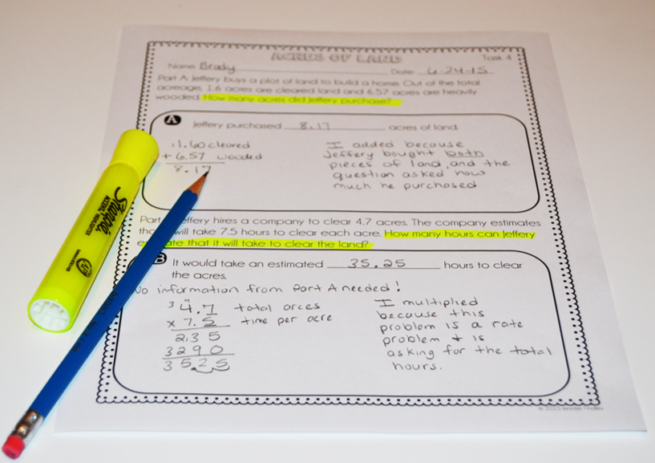 ACRES OF LAND
Task 4
Name Brady Date 6-24-15
Part A: Jeffery buys a plot of land to build a home. Out of the total
acreage, 1.6 acres are cleared land and 6.57 acres are heavily
wooded. How many acres did Jeffery purchase?
A
Jeffery purchased 8.17 acres of land.
1.60 cleared
+ 6.57 wooded
8.17
I added because
Jeffery bought both
pieces of land, and the
question asked how
much he purchased
Part Jeffery hires a company to clear 4.7 acres. The company estimates
will take 7.5 hours to clear each acre. How many hours can Jeffery
that it will take to clear the land?
B
It would take an estimated 35.25 hours to clear
the acres.
No information from Part A needed!
3
4.7 total acres
x 7.5 time per acre
235
3290
35.25
I multiplied
because this
problem is a rate
problem + is
asking for the total
hours.
Sharpie